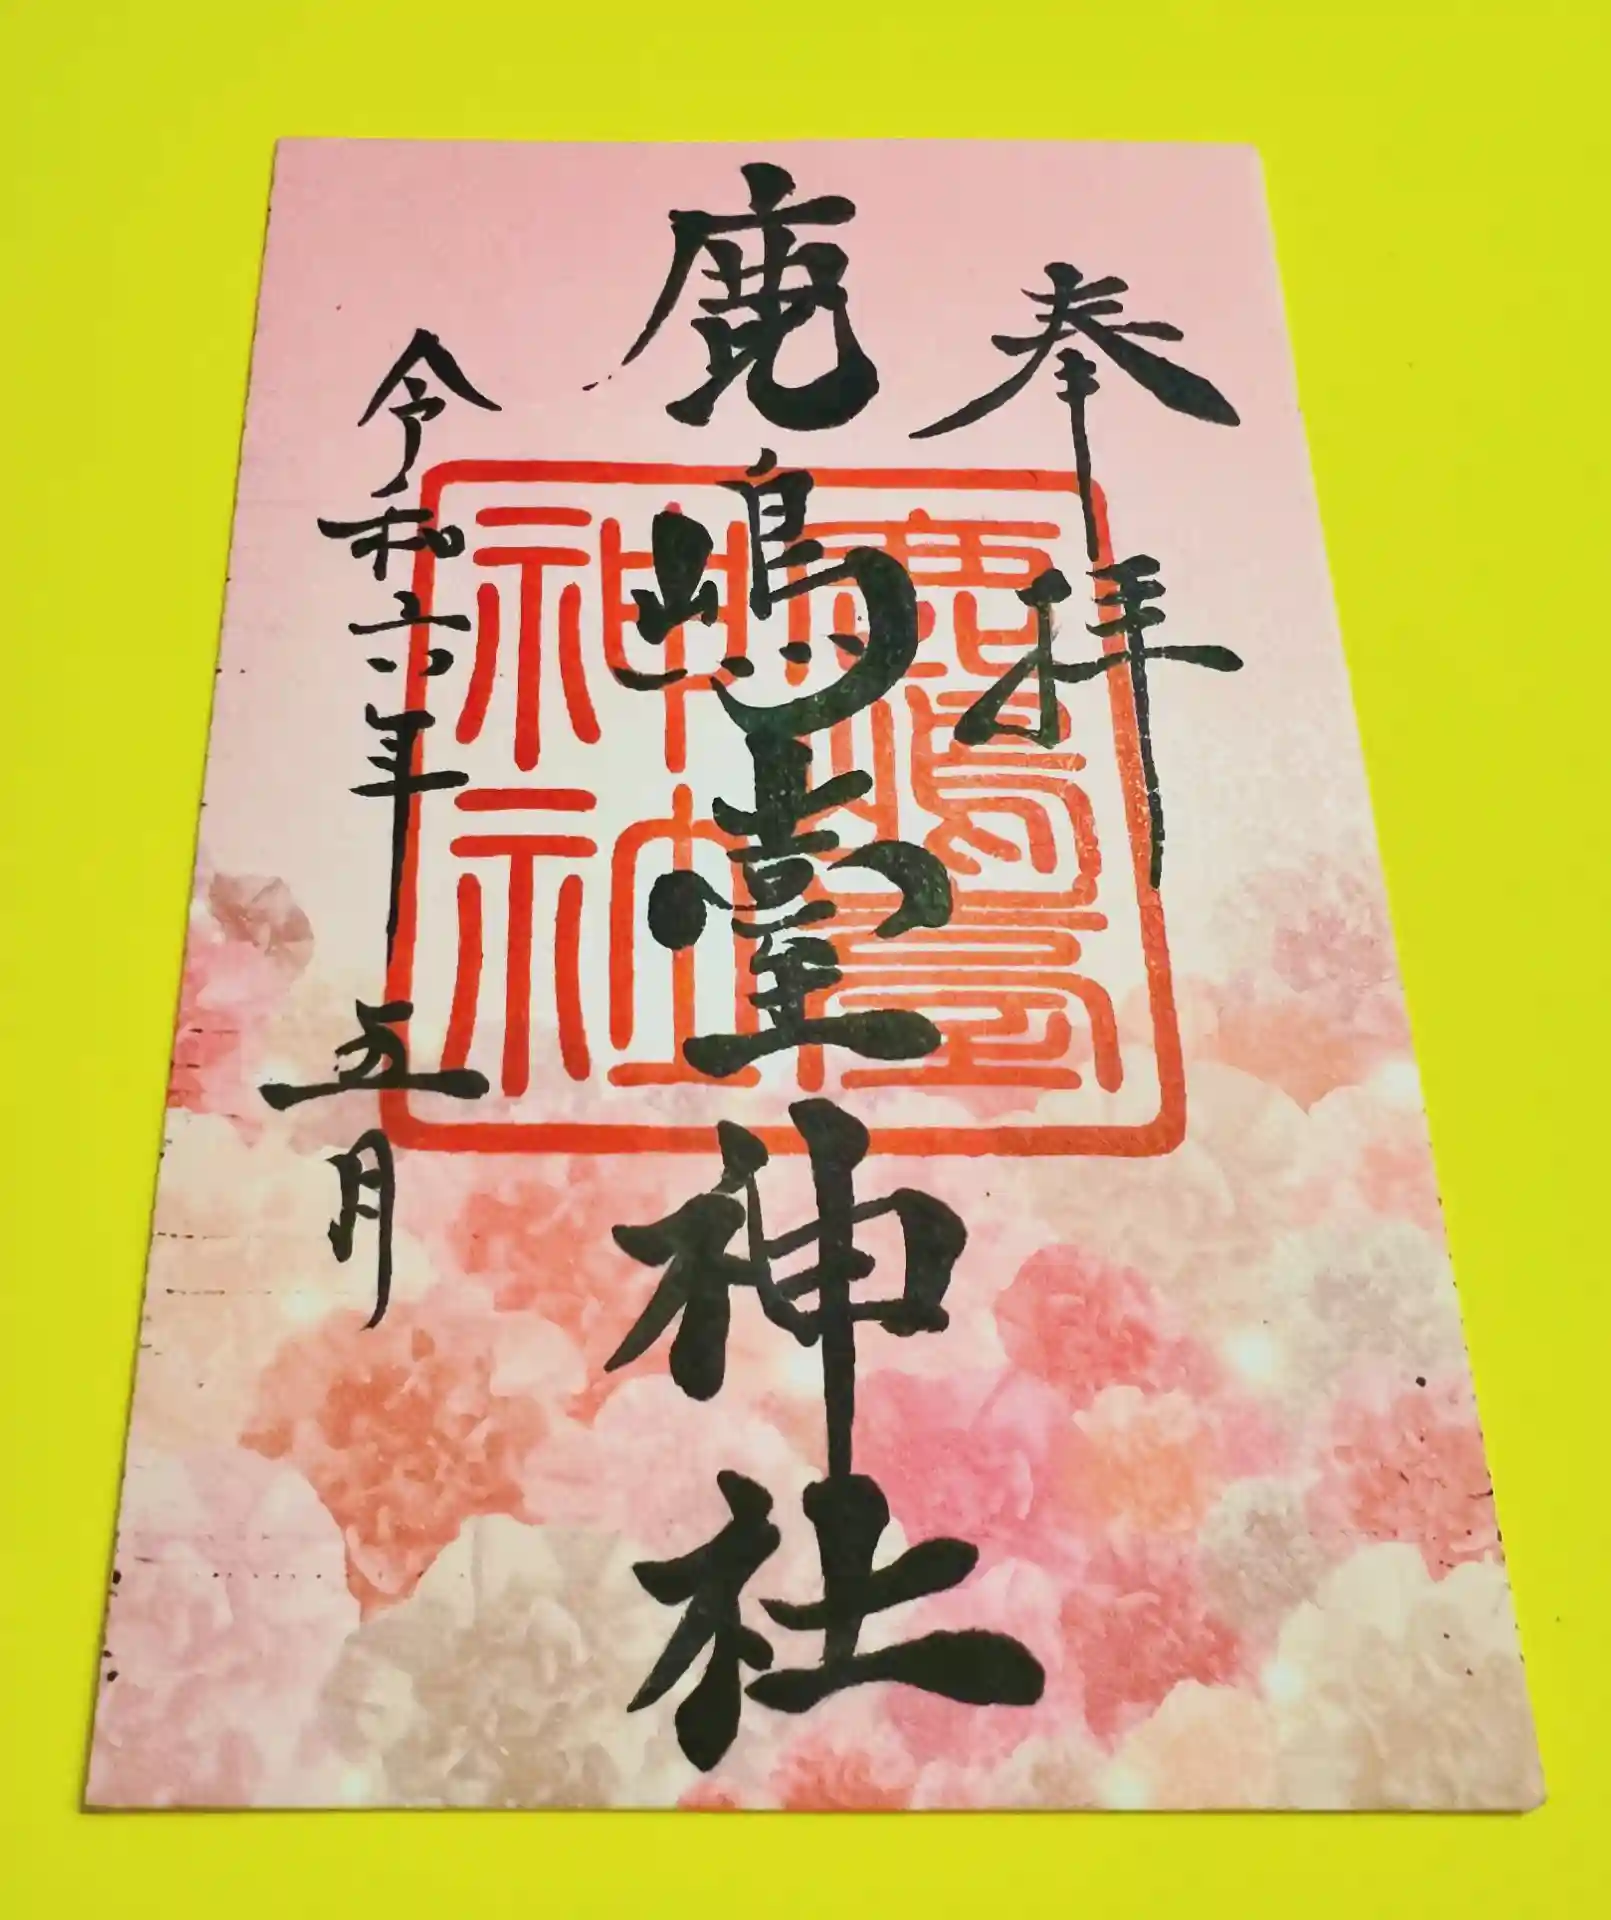 奉拝
鹿嶋臺神社
令和六年
五月
鹿嶋臺
神社